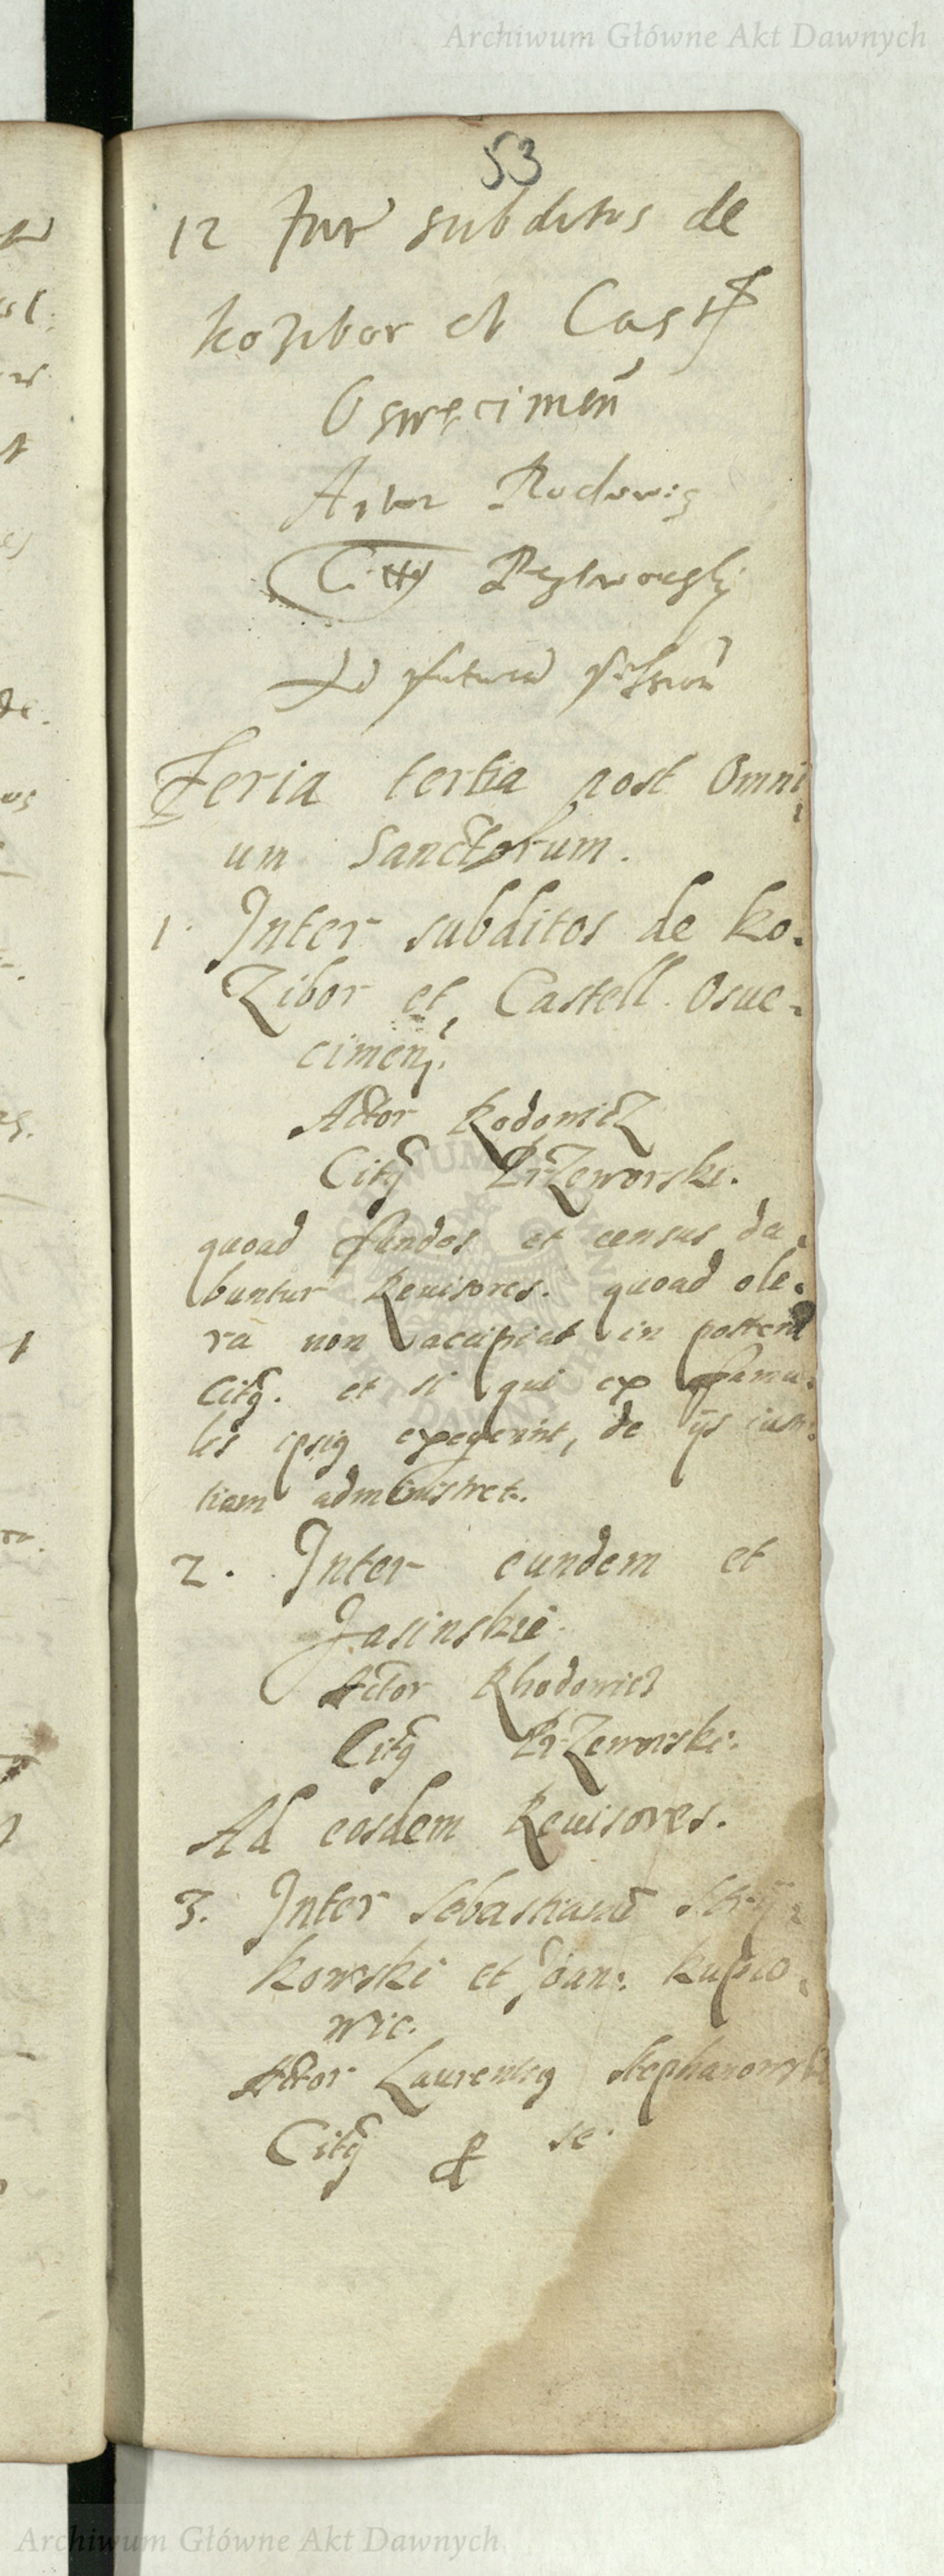 Archiwum Główne Akt Dawnych
53
12 Int subditos de
kozibor et Cast
Oswęcimeñ
Actor Rodowiz
Cit9
Ad futurā sessionē
Feria tertia post Omni
um Sanctorum.
1. Inter subditos de Ko-
Zibor et Castell. Osue-
cimen.
Actor Rodowicz
Cit9 PrZeworski.
quoad fundos et census da-
buntur Reuisores. quoad ole-
ra non accipiat in posterū
Cit9. et si qui ex famu-
lis ipsi9 exegerint, de ijs iusti-
tiam administret.
2. Inter eundem et
Jasinskie.
Actor Rhodowicz
Cit9 PrZeworski.
Ad eosdem Reuisores.
3. Inter Sebastianū Strij-
kowski et Joan:
wic.
Actor Laurenti9 Stephanowski
Cit9 p se.
Archiwum Główne Akt Dawnych